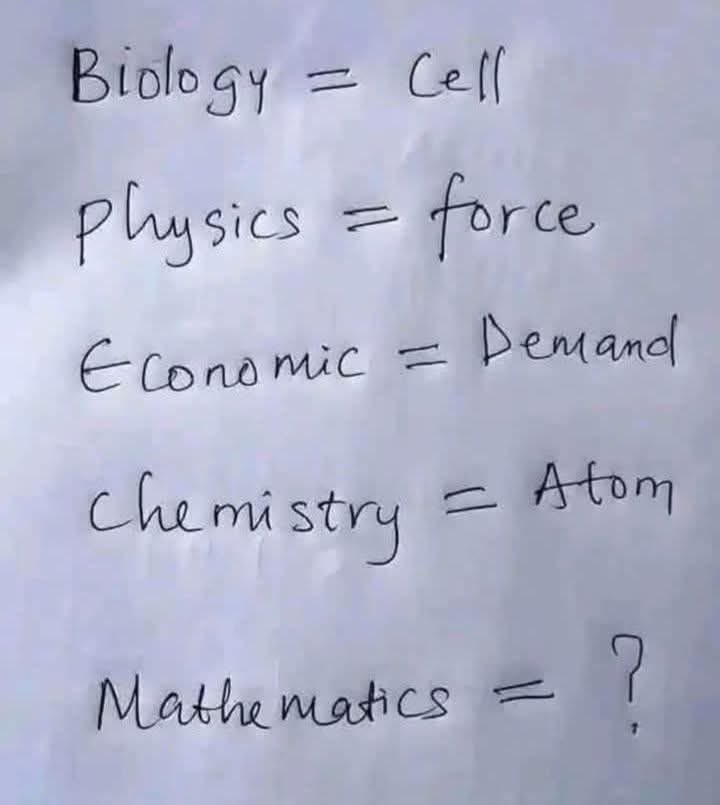 Biology = Cell
Physics = force
Economic = Demand
Chemistry = Atom
Mathematics = ?